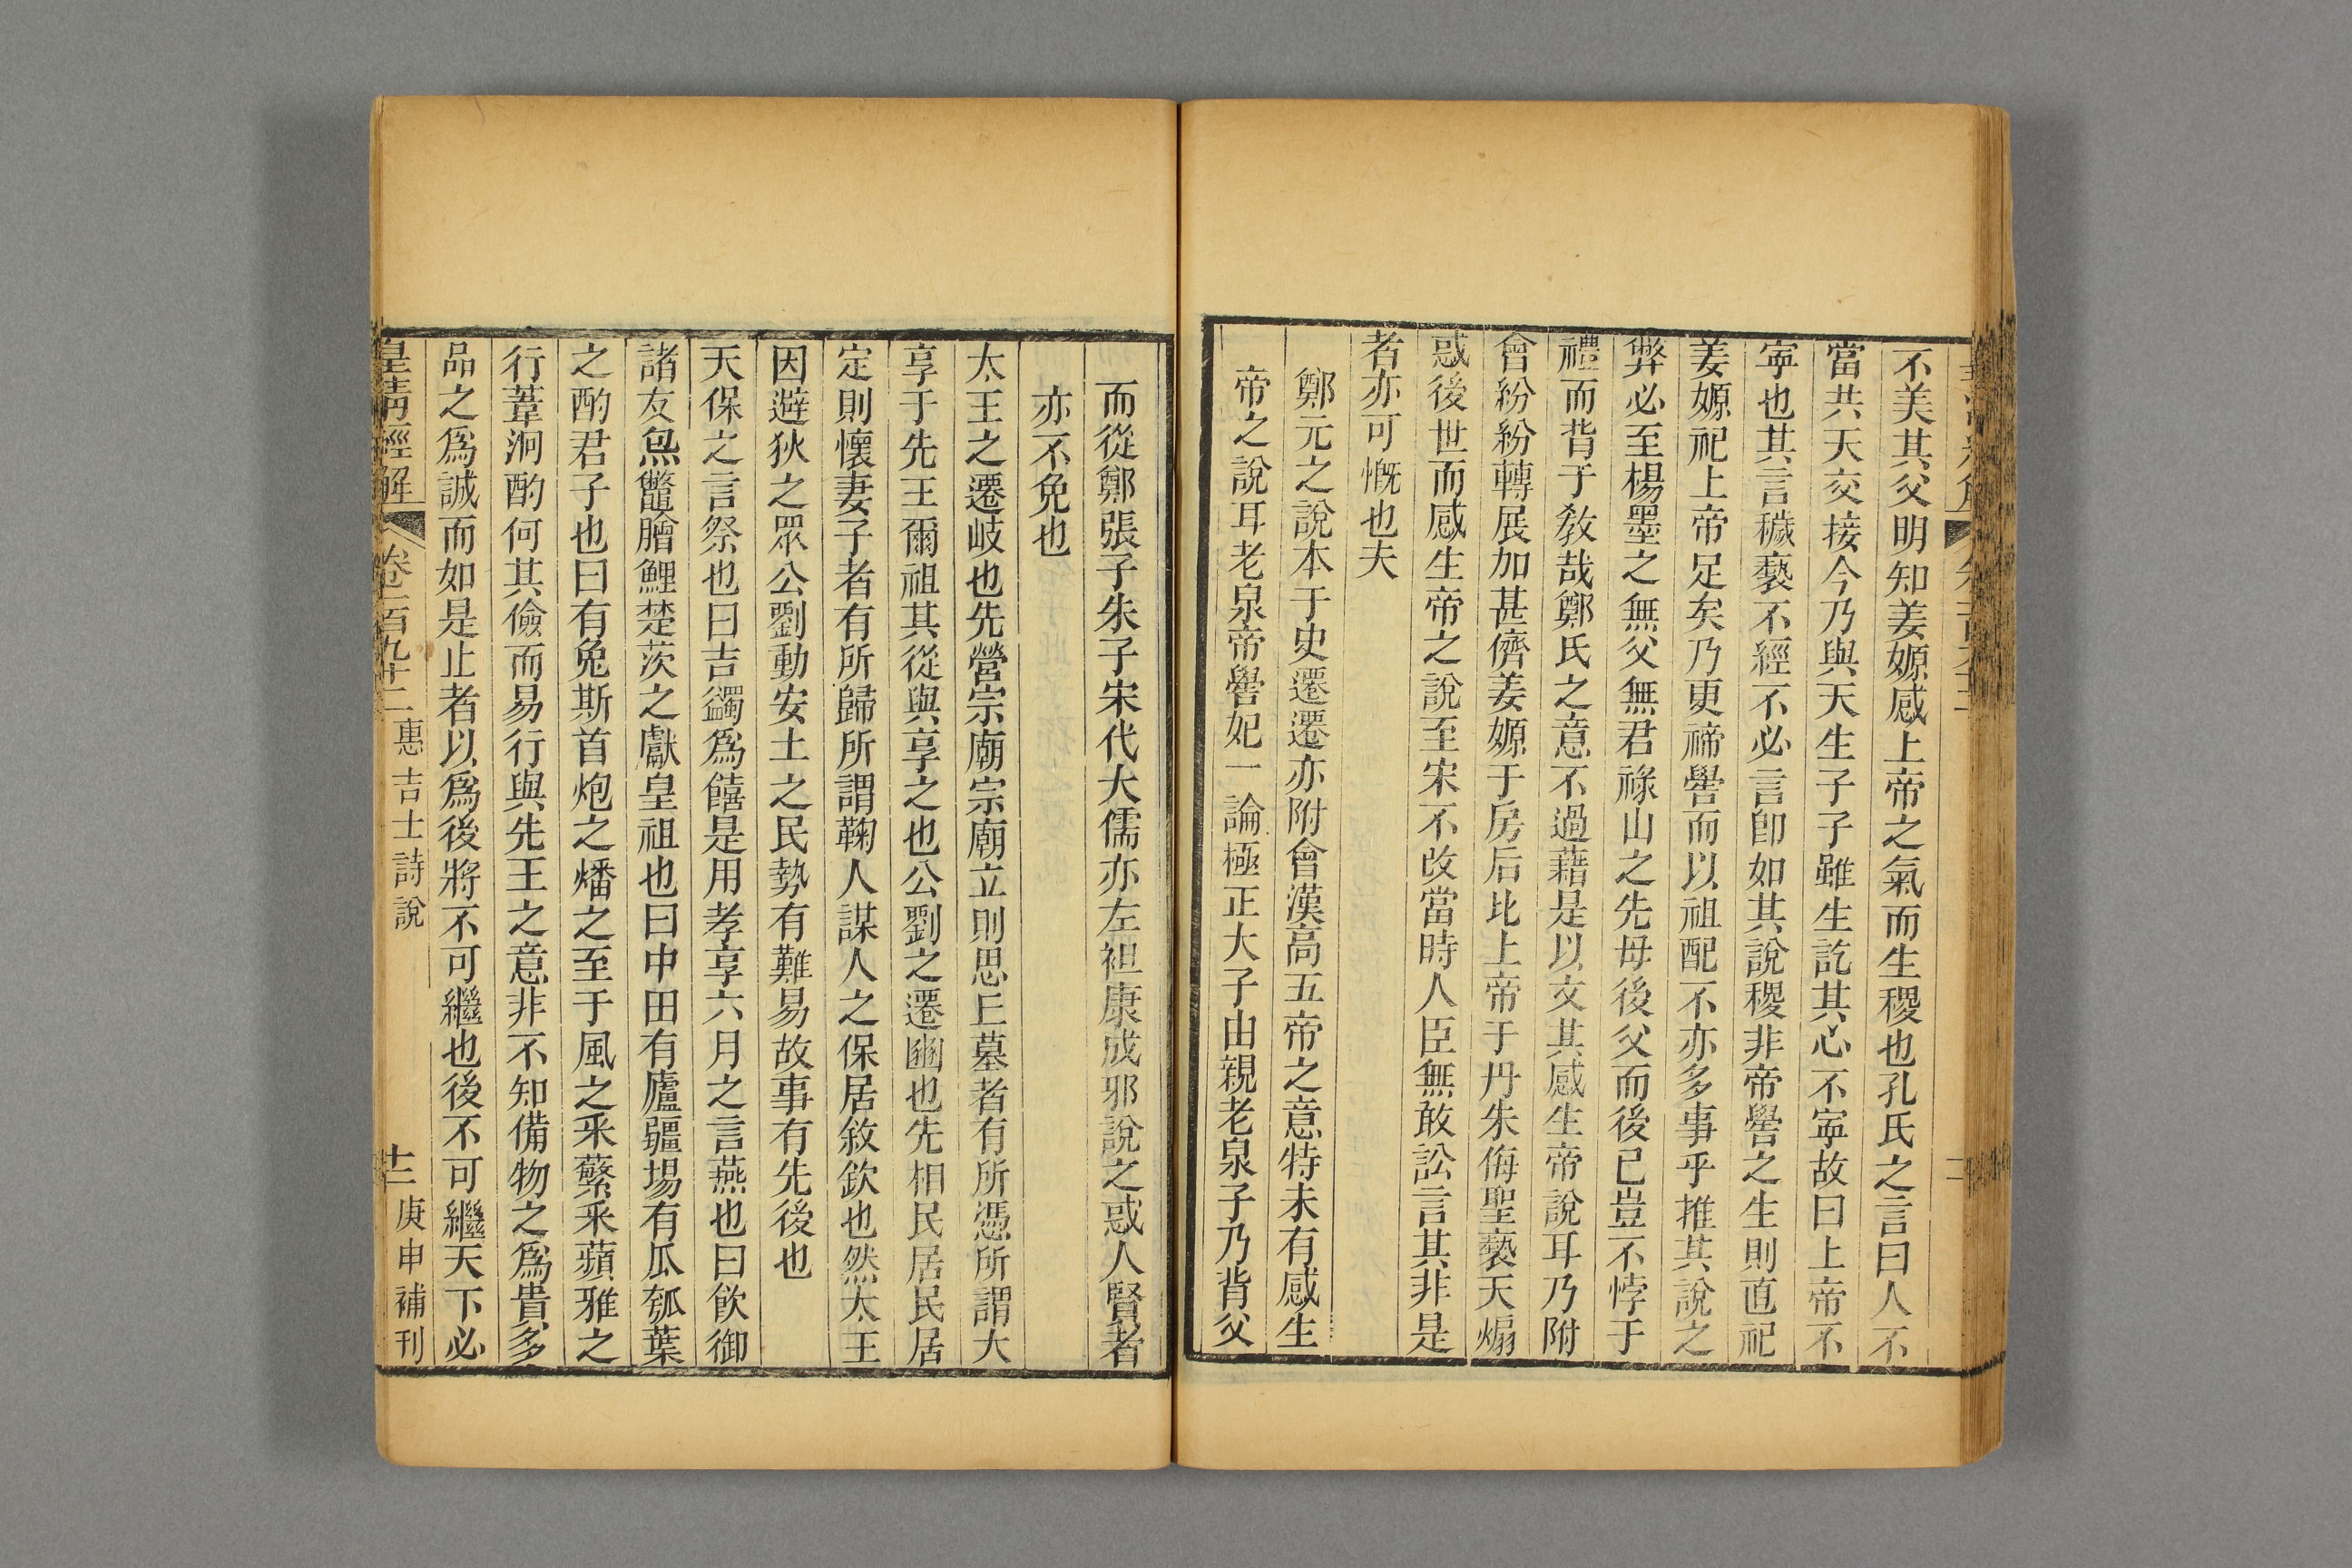 不美其父明知姜嫄感上帝之氣而生稷也孔氏之言曰人不
當共天交接今乃與天生子子雖生訖其心不寧故曰上帝不
寧也其言穢褻不經不必言卽如其說稷非帝嚳之生則直祀
姜嫄祀上帝足矣乃更禘嚳而以祖配不亦多事乎推其說之
弊必至楊墨之無父無君祿山之先母後父而後已豈不悖于
禮而背于敎哉鄭氏之意不過藉是以文其感生帝說耳乃附
會紛紛轉展加甚儕姜嫄于房后比上帝于丹朱侮聖褻天煽
惑後世而感生帝之說至宋不改當時人臣無敢訟言其非是
者亦可慨也夫
鄭元之說本于史遷遷亦附會漢高五帝之意特未有感生
帝之說耳老泉帝嚳妃一論極正大子由親老泉子乃背父
而從鄭張子朱子宋代大儒亦左袒康成邪說之惑人賢者
亦不免也
太王之遷岐也先營宗廟宗廟立則思丘墓者有所憑所謂大
享于先王爾祖其從與享之也公劉之遷豳也先相民居民居
定則懷妻子者有所歸所謂鞠人謀人之保居敘欽也然太王
因避狄之眾公劉動安土之民勢有難易故事有先後也
天保之言祭也曰吉蠲爲饎是用孝享六月之言燕也曰飮御
諸友炰鼈膾鯉楚茨之獻皇祖也曰中田有廬疆場有瓜瓠葉
之酌君子也曰有兔斯首炮之燔之至于風之采蘩采蘋雅之
行葦泂酌何其儉而易行與先王之意非不知備物之爲貴多
品之爲誠而如是止者以爲後將不可繼也後不可繼天下必
皇清經解 卷二百九十二 惠吉士詩說 十二 庚申補刊